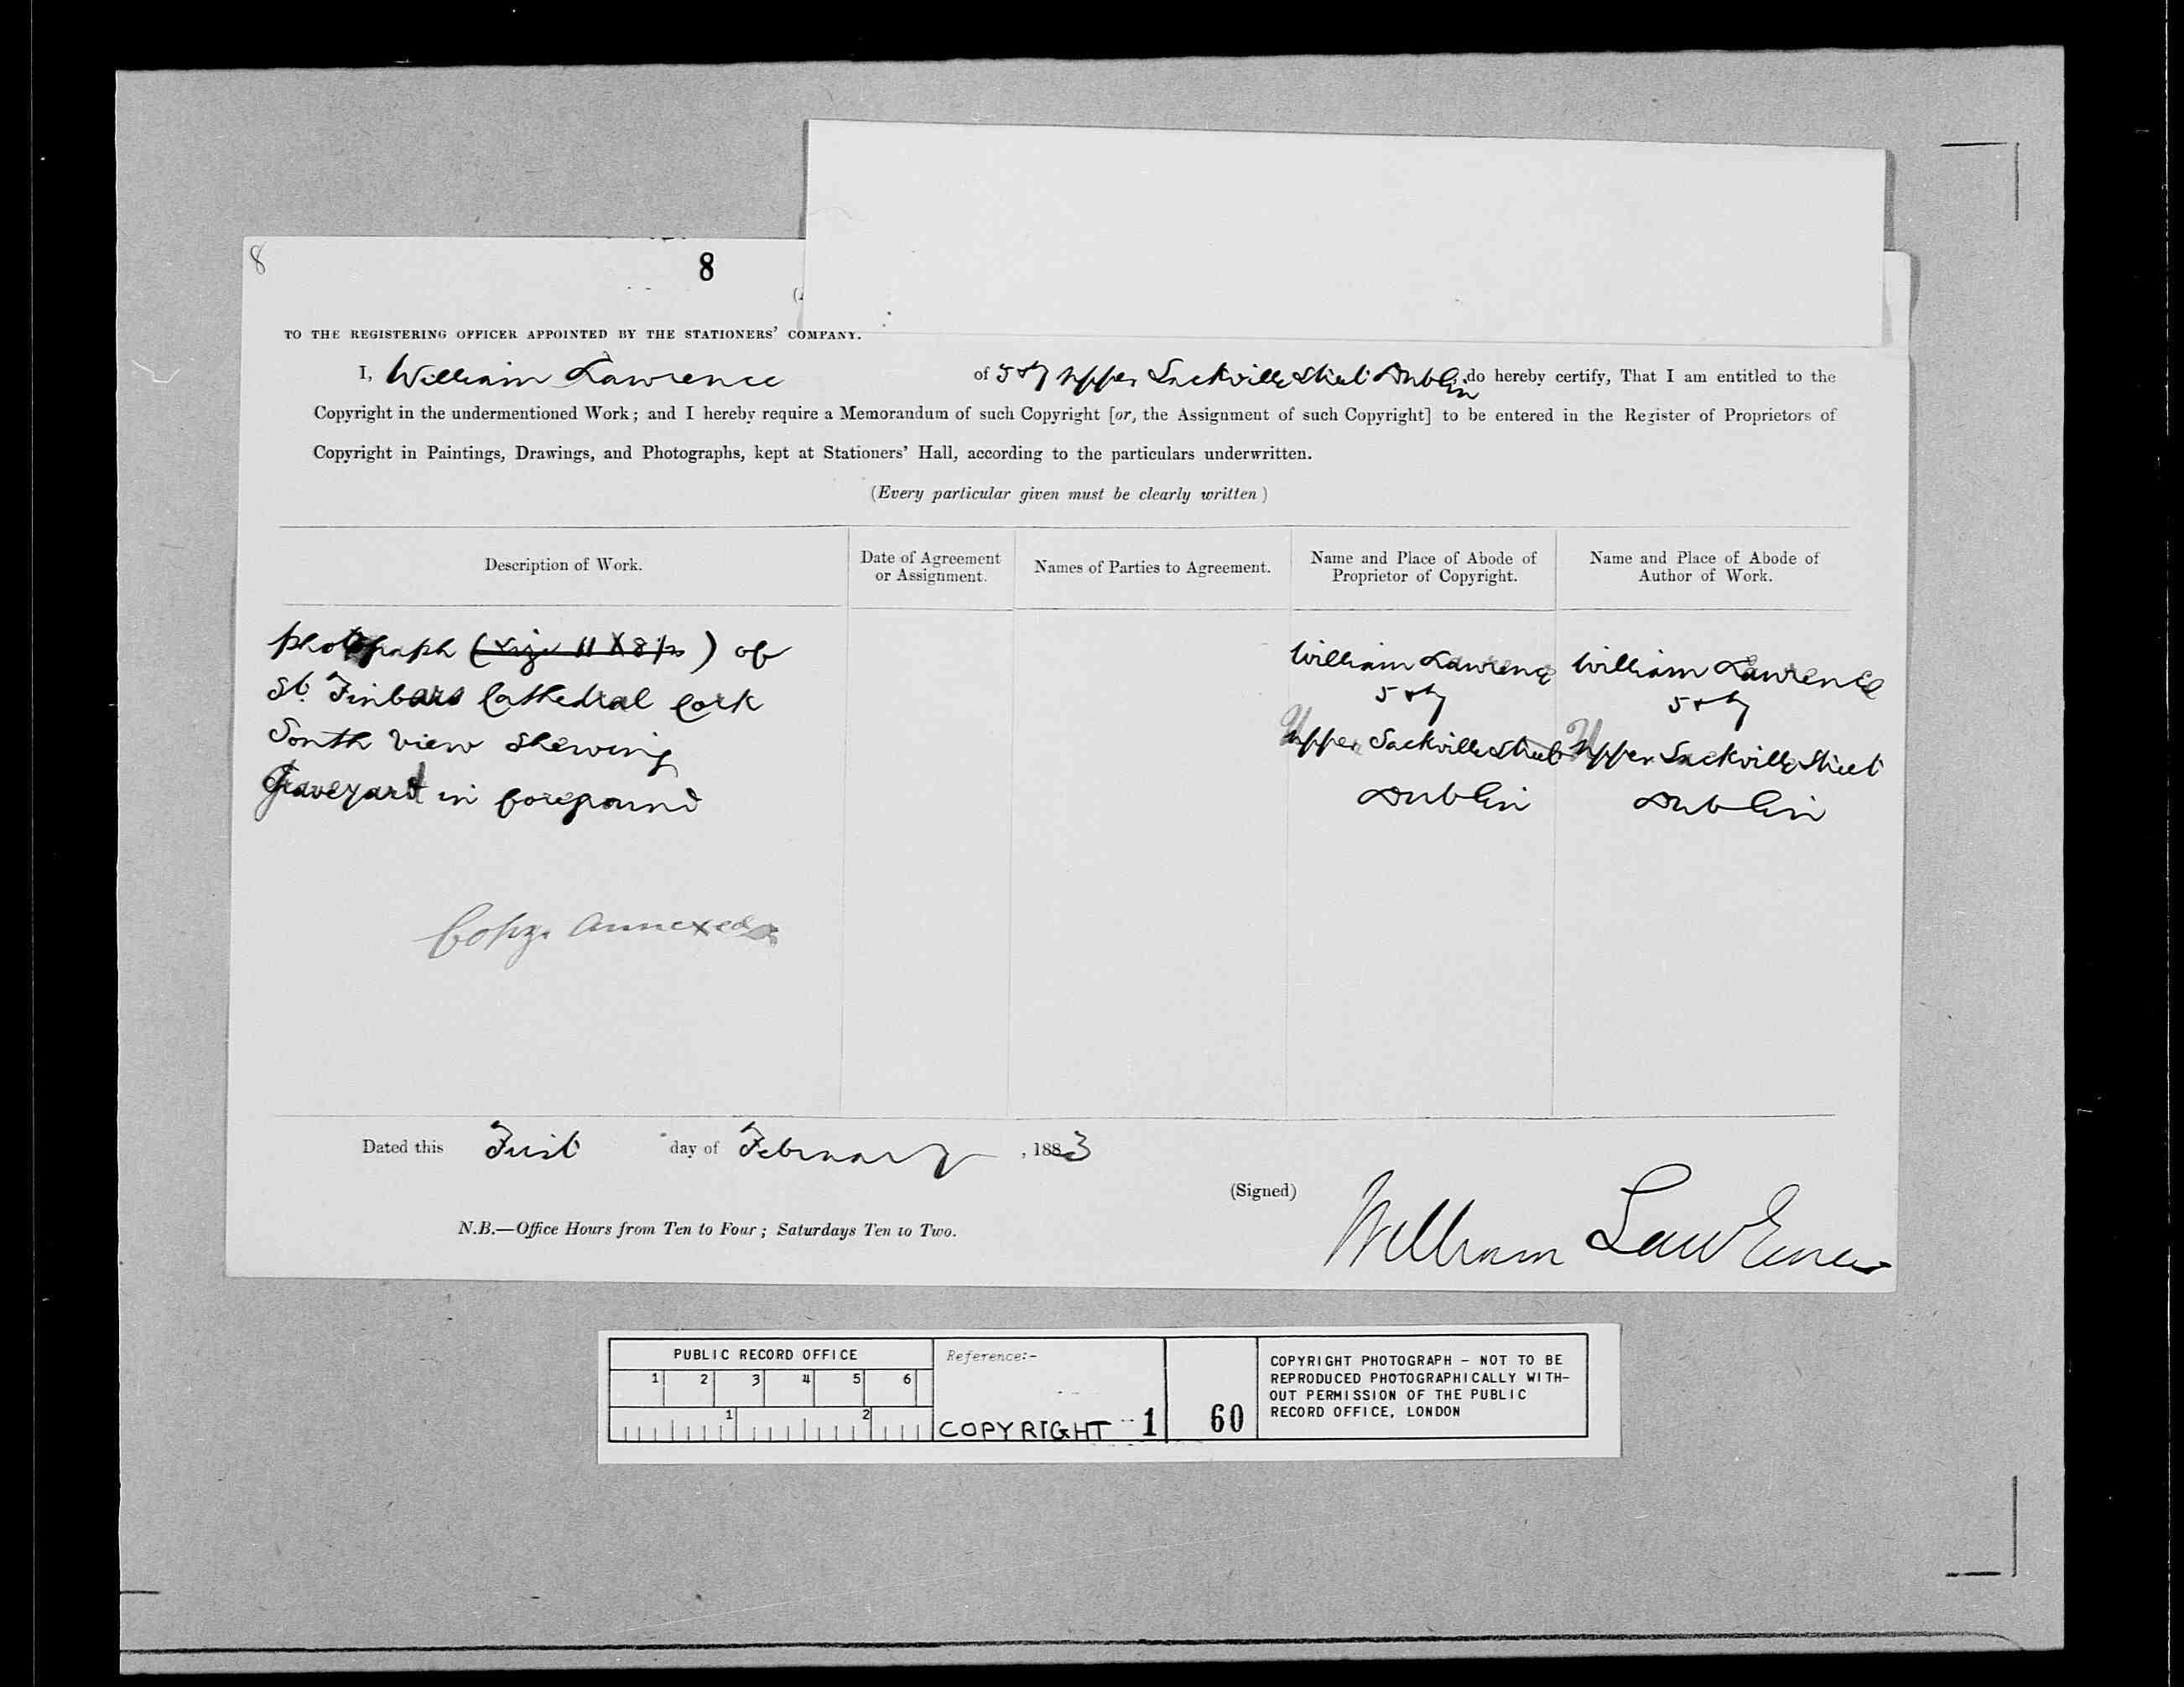 8
8
TO THE REGISTERING OFFICER APPOINTED BY THE STATIONERS' COMPANY.
I, William Lawrence of 5 & 7 Upper Sackville Street Dublin do hereby certify, That I am entitled to the
Copyright in the undermentioned Work; and I hereby require a Memorandum of such Copyright [or, the Assignment of such Copyright] to be entered in the Register of Proprietors of
Copyright in Paintings, Drawings, and Photographs, kept at Stationers' Hall, according to the particulars underwritten.
(Every particular given must be clearly written)
Description of Work.
Date of Agreement
or Assignment.
Names of Parties to Agreement.
Name and Place of Abode of
Proprietor of Copyright.
Name and Place of Abode of
Author of Work.
photograph (size 11 X 8½) of
St. Finbars Cathedral Cork
South View shewing
Graveyard in foreground
Copy annexed
William Lawrence
5 & 7
Upper Sackville Street
Dublin
William Lawrence
5 & 7
Upper Sackville Street
Dublin
Dated this First day of February, 1883
(Signed)
William Lawrence
N.B.—Office Hours from Ten to Four; Saturdays Ten to Two.
PUBLIC RECORD OFFICE
1 2 3 4 5 6
1 2
Reference:-
COPYRIGHT 1
60
COPYRIGHT PHOTOGRAPH - NOT TO BE
REPRODUCED PHOTOGRAPHICALLY WITH-
OUT PERMISSION OF THE PUBLIC
RECORD OFFICE, LONDON